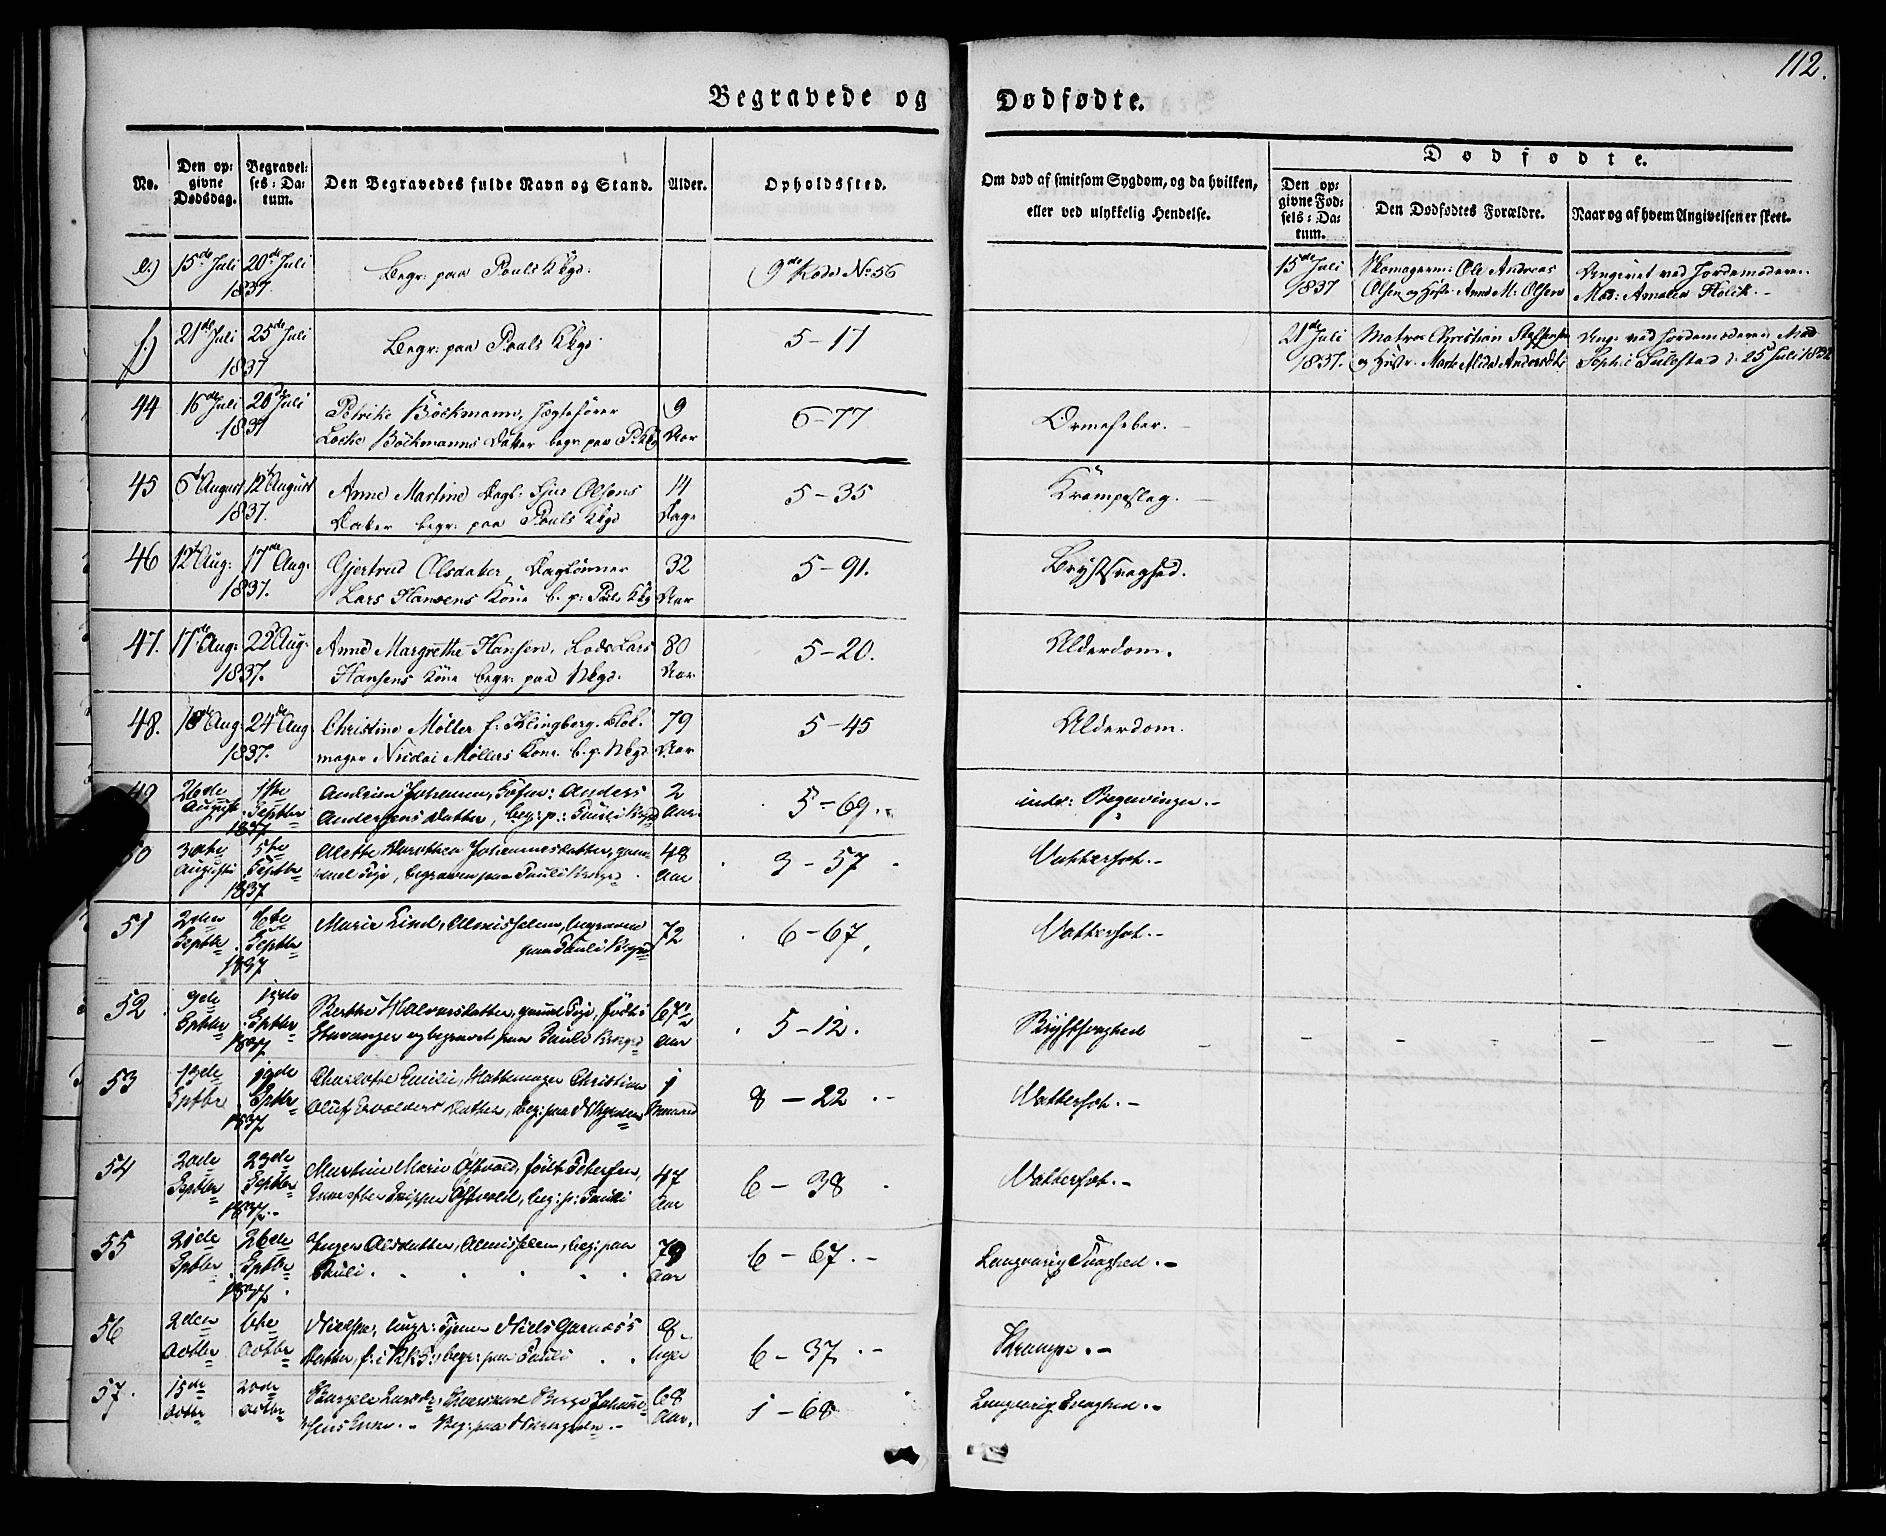 112.
Begravede og Dødfødte.
No.
Den op-
givne
Dødsdag.
Begravel-
ses-Da-
tum.
Den Begravedes fulde Navn og Stand.
Alder.
Opholdssted.
Om død af smitsom Sygdom, og da hvilken,
eller ved ulykkelig Hendelse.
Dødfødte.
Den op-
givne Fød-
sels-Da-
tum.
Den Dødfødtes Forældre.
Naar og af hvem Angivelsen er skeet.
e.) 15de Juli 20de Juli
1837.
Begr: paa Pouls Kkgd.
9de Rode No 56
15de Juli
1837
Skomagerm: Ole Andreas
Olsen og Hustr. Anne M: Olsen
Angivet ved Jordemoderen
Mad: Amalia Holck.
f.) 21de Juli 25de Juli
1837
Begr: paa Pouls Kkgd
5-17
21de Juli
1837.
Matros Christian Steffensen
og Hustr.
Ang: ved Jordemoderen Mad
Sophie d. 25 Juli 1837
44 16de Juli 20de Juli
1837
Petrike Böckmann, Jægtefører
Böckmanns Datter begr: paa P. Kkg
9
Aar
6-77
Ormefeber.
45 6te August 12te August
1837.
Anne Martine Dagl: Olsens
Datter begr: paa Pouls Kkgd
14
Dage
5-35
Krampeslag.
46 12te Aug: 17de Aug:
1837.
Gjertrud Olsdatter, Daglønner
Lars Hansens Kone b. p: Pouls Kkg
32
Aar
5-91.
Brystsvaghed.
47. 17de Aug: 22de Aug:
1837.
Anne Margrethe Hansen, Lods Lars
Hansens Kone begr: paa Nkgd.
80
Aar
5-20.
Alderdom.
48. 18de Aug: 24de Aug
1837.
Christine Möller f: Klingberg. Blok-
mager Nicolai Möllers Kone. b. p. Nkgd.
79
Aar
5-45
Alderdom.
49 26de 1ste
August Septbr
1837
Johanna, Anders
Andersens Datter, beg: p: Pauli Kkgd
2
Aar.
5-69.
indv: Begevinger.-
50 30te 5te
August Septbr
1837
Alette Dorothea Johannesdatter, gam-
mel Pige, begraven paa Pauli Kirkegd
48
Aar
3-57
Vattersot.-
51 2den 6te
Septbr Septbr
1837
Marie Lind, Almisselem, begraven
paa Pauli Kkgd
72
6-67.
Vattersot.-
52. 9de 13de
Sptbr Sptbr
1837
Berthe Halvorsdatter, gaml Pige, født i
Stavanger og begravet paa Pauli Kirkegd
67½
Aar
5-12.
Brystsvaghed
53 13de 19de
Sptbr Sptbr.
1837
Charlotte Emilie, Hattemager Christian
Oluf Datter, beg: paa
1
8-22.-
Vattersot.-
54 20de 23de
Septbr Septbr
1837.-
Martine Marie Østvold, født Petersen,
Enke efter Skipper Østvold, beg: p: Pauli
47
Aar
6-38
Vattersot.-
55 21de 26de
Sptbr Sptbr
1837.
Inger Olsdatter, Almisselem, beg: paa
Pauli.
79
Aar
6-67.-
Langvarig Svaghed.-
56 2den 6te
Octbr Octbr
Niels
Datter, f: i begr: paa Pauli
8
Uger
6-37.-
Krampe.-
57. 15de 20de
Octbr Octbr
Beg: paa
68
Aar.
1-68
Langvarig Svaghed.-